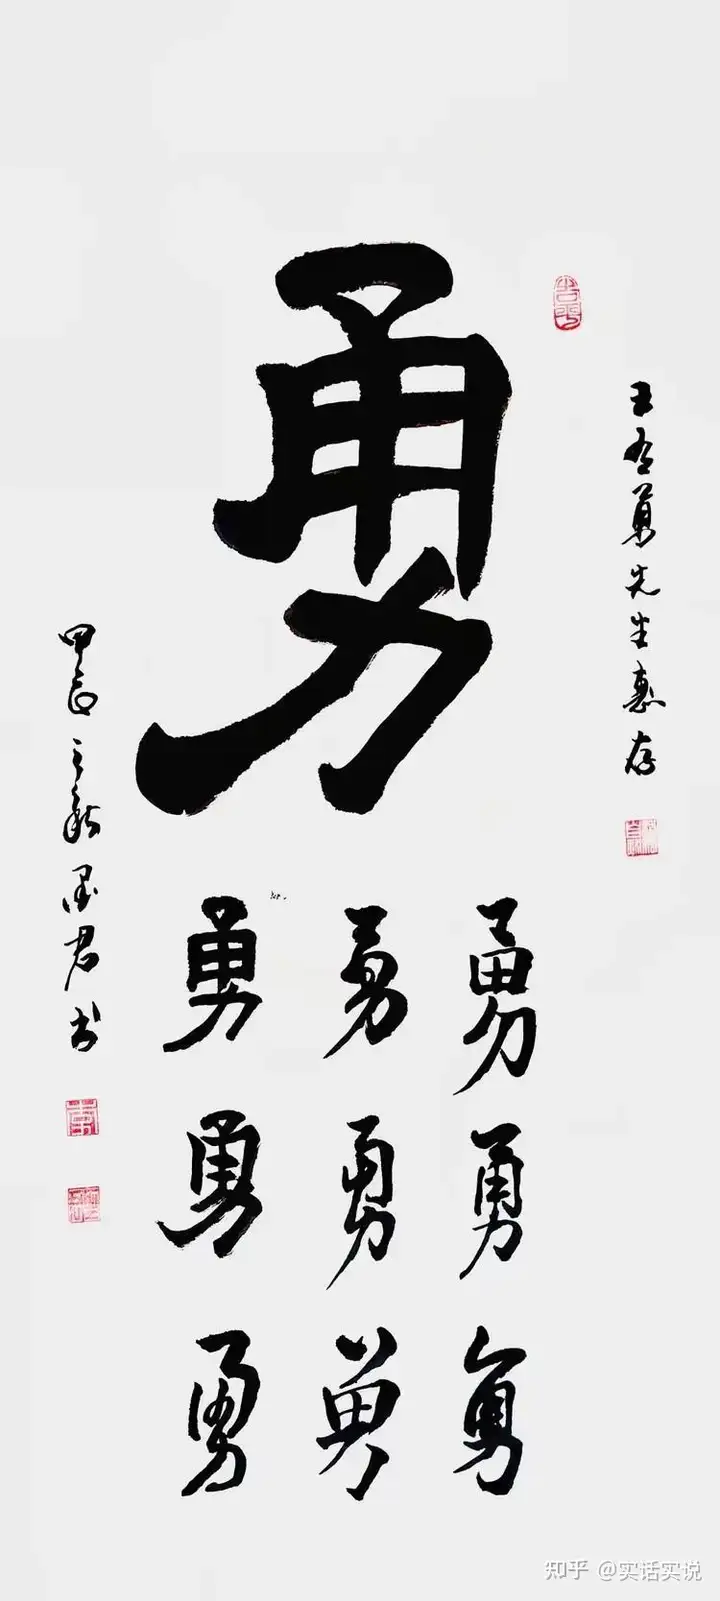 王有勇先生惠存
勇
勇勇勇
勇勇勇
勇勇勇
甲辰之墨君书
知乎 @实话实说